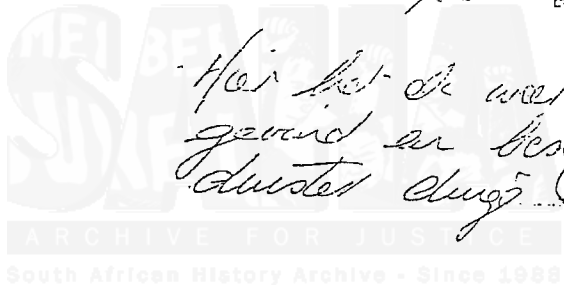 Hier het ek weer
gevind en bes
duister dinge
ARCHIVE FOR JUSTICE
South African History Archive - Since 1986